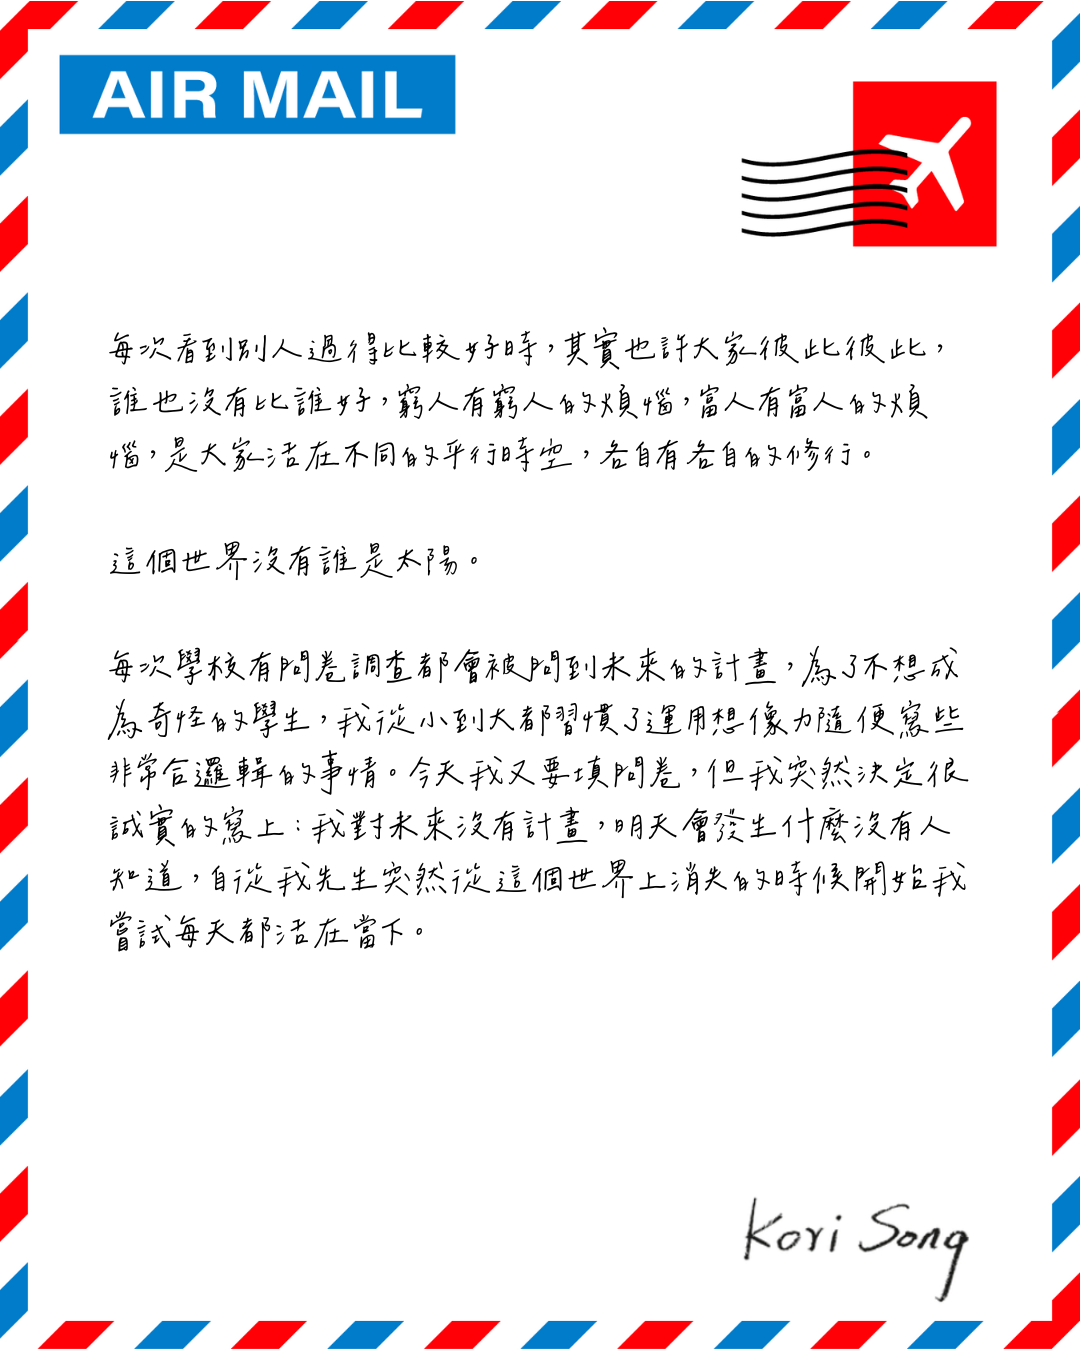 AIR MAIL
每次看到別人過得比較好時，其實也許大家彼此彼此，
誰也沒有比誰好，窮人有窮人的煩惱，富人有富人的煩
惱，是大家活在不同的平行時空，各自有各自的修行。
這個世界沒有誰是太陽。
每次學校有問卷調查都會被問到未來的計畫，為了不想成
為奇怪的學生，我從小到大都習慣了運用想像力隨便寫些
非常合邏輯的事情。今天我又要填問卷，但我突然決定很
誠實的寫上：我對未來沒有計畫，明天會發生什麼沒有人
知道，自從我先生突然從這個世界上消失的時候開始我
嘗試每天都活在當下。
Kori Song